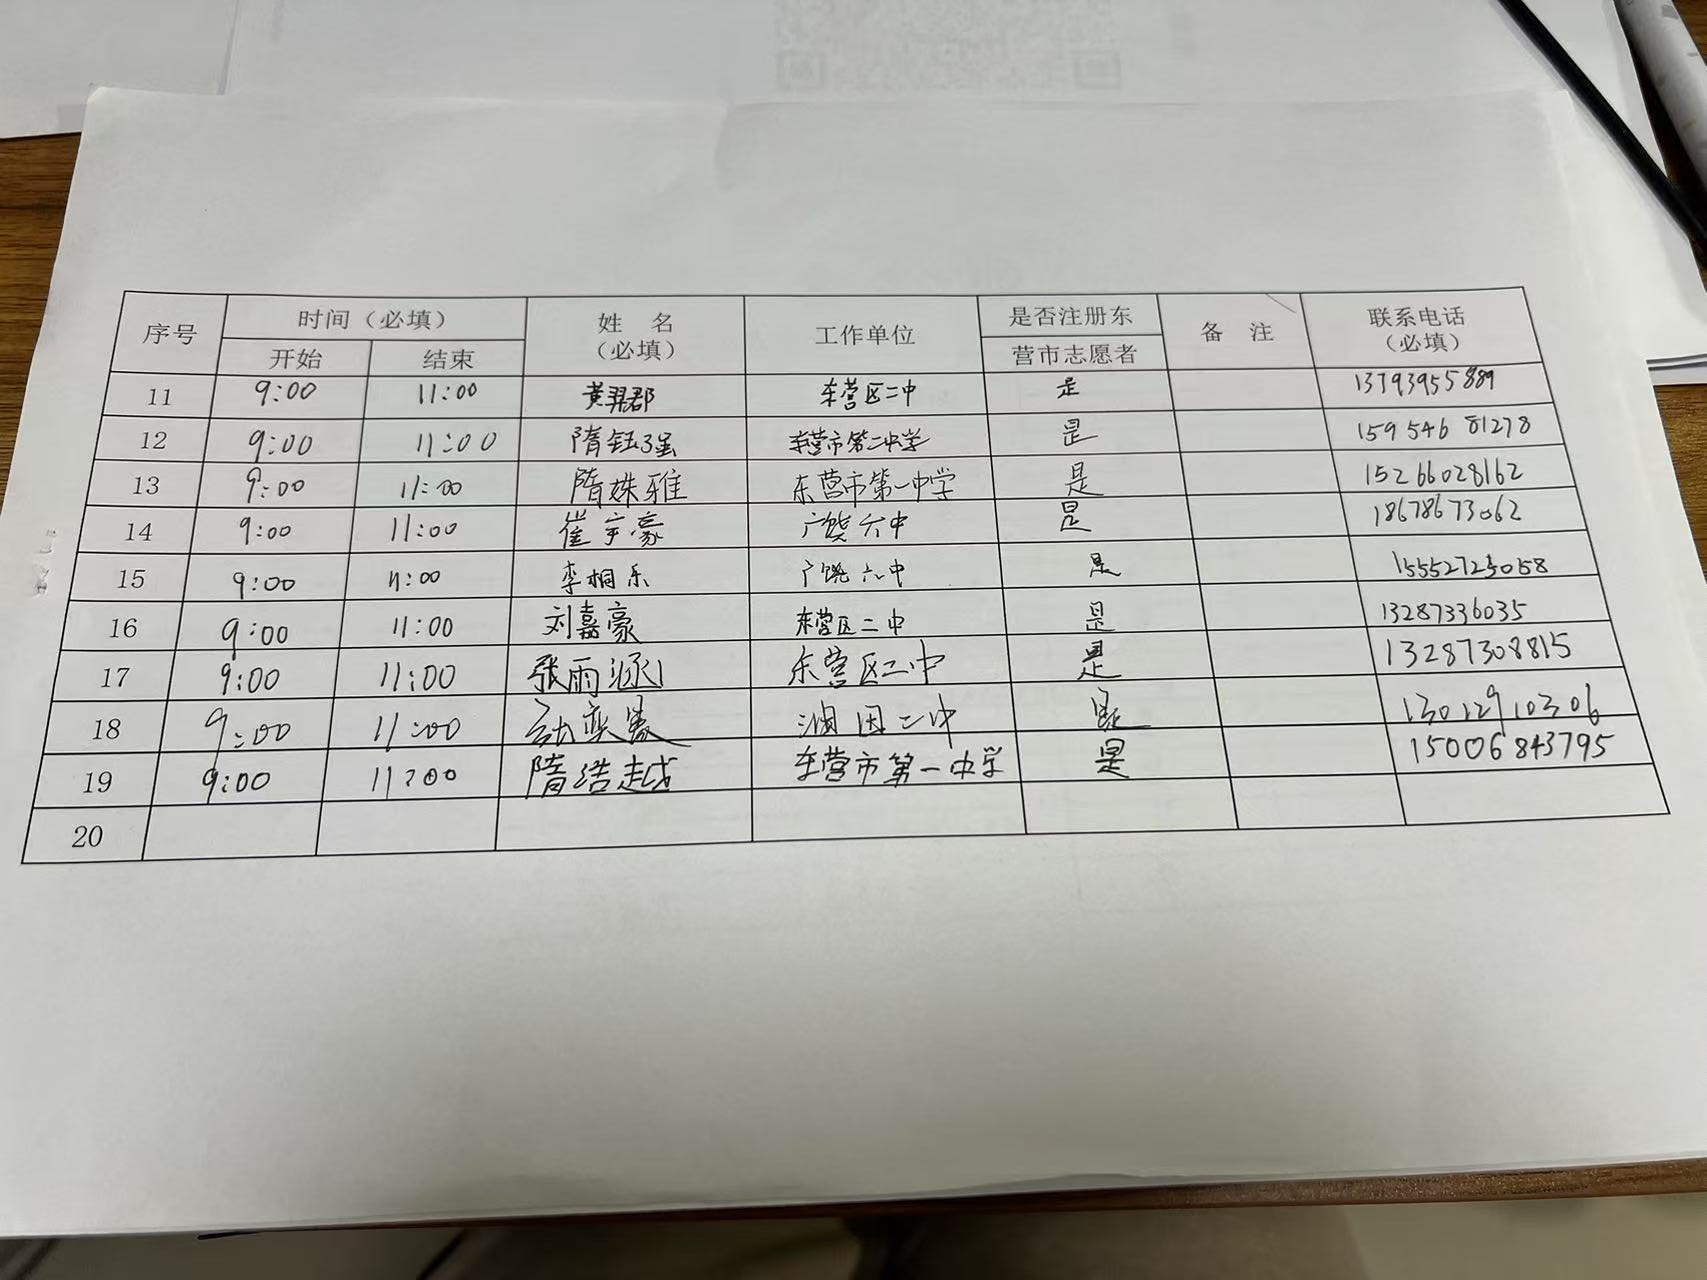 序号 时间（必填） 姓 名（必填） 工作单位 是否注册东营市志愿者 备 注 联系电话（必填）
开始 结束
11 9:00 11:00 黄羿郡 东营区二中 是 13793955889
12 9:00 11:00 隋钰 东营市第二中学 是 15954681278
13 9:00 11:00 隋姝雅 东营市第一中学 是 15266028162
14 9:00 11:00 崔宇豪 广饶六中 是 18678673062
15 9:00 11:00 李桐乐 广饶六中 是
16 9:00 11:00 刘嘉豪 东营区二中 是 13287336035
17 9:00 11:00 张雨涵 东营区二中 是 13287308815
18 9:00 11:00 二中 是 13012910306
19 9:00 11:00 隋浩越 东营市第一中学 是 15006843795
20